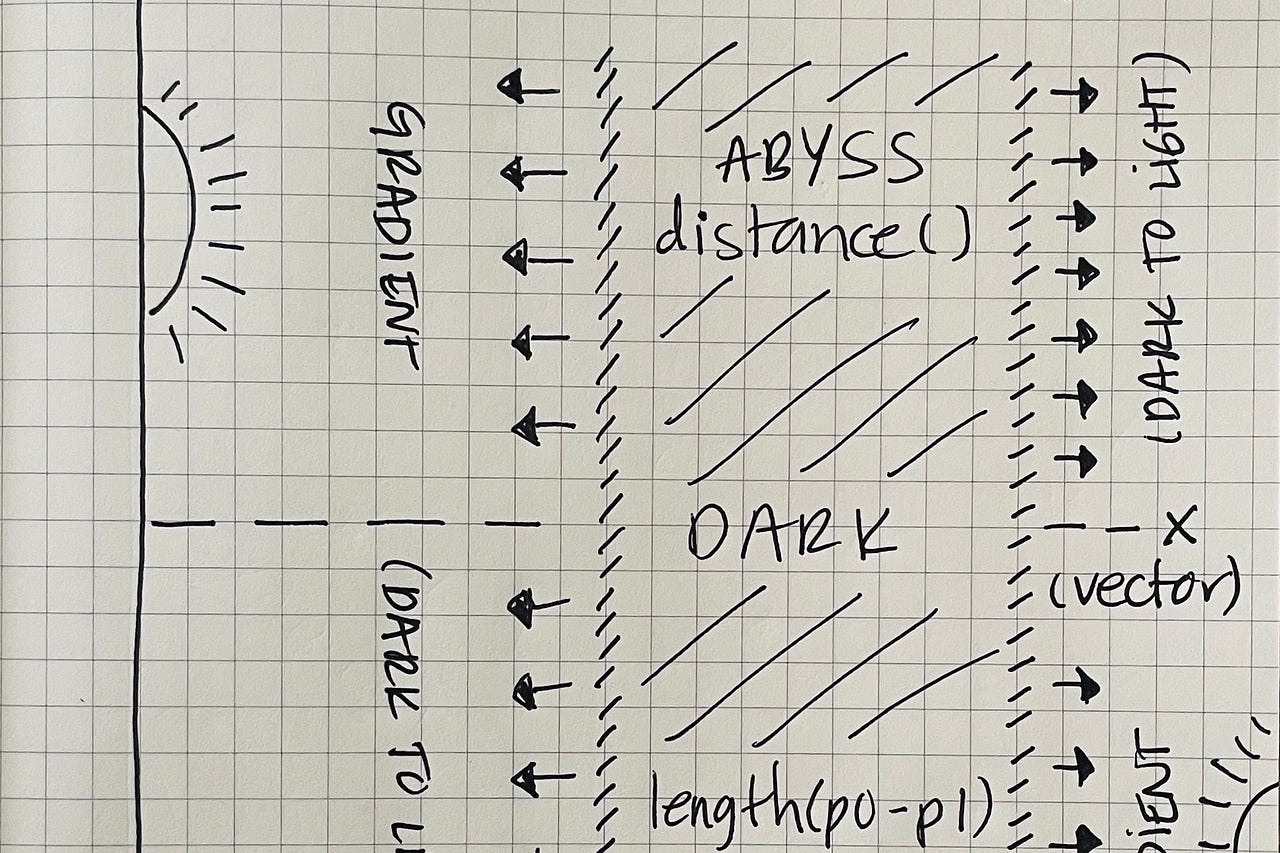 GRADIENT
(DARK TO LI
ABYSS
distance()
DARK
length(p0-p1)
(DARK TO LIGHT)
X
(vector)
DIENT